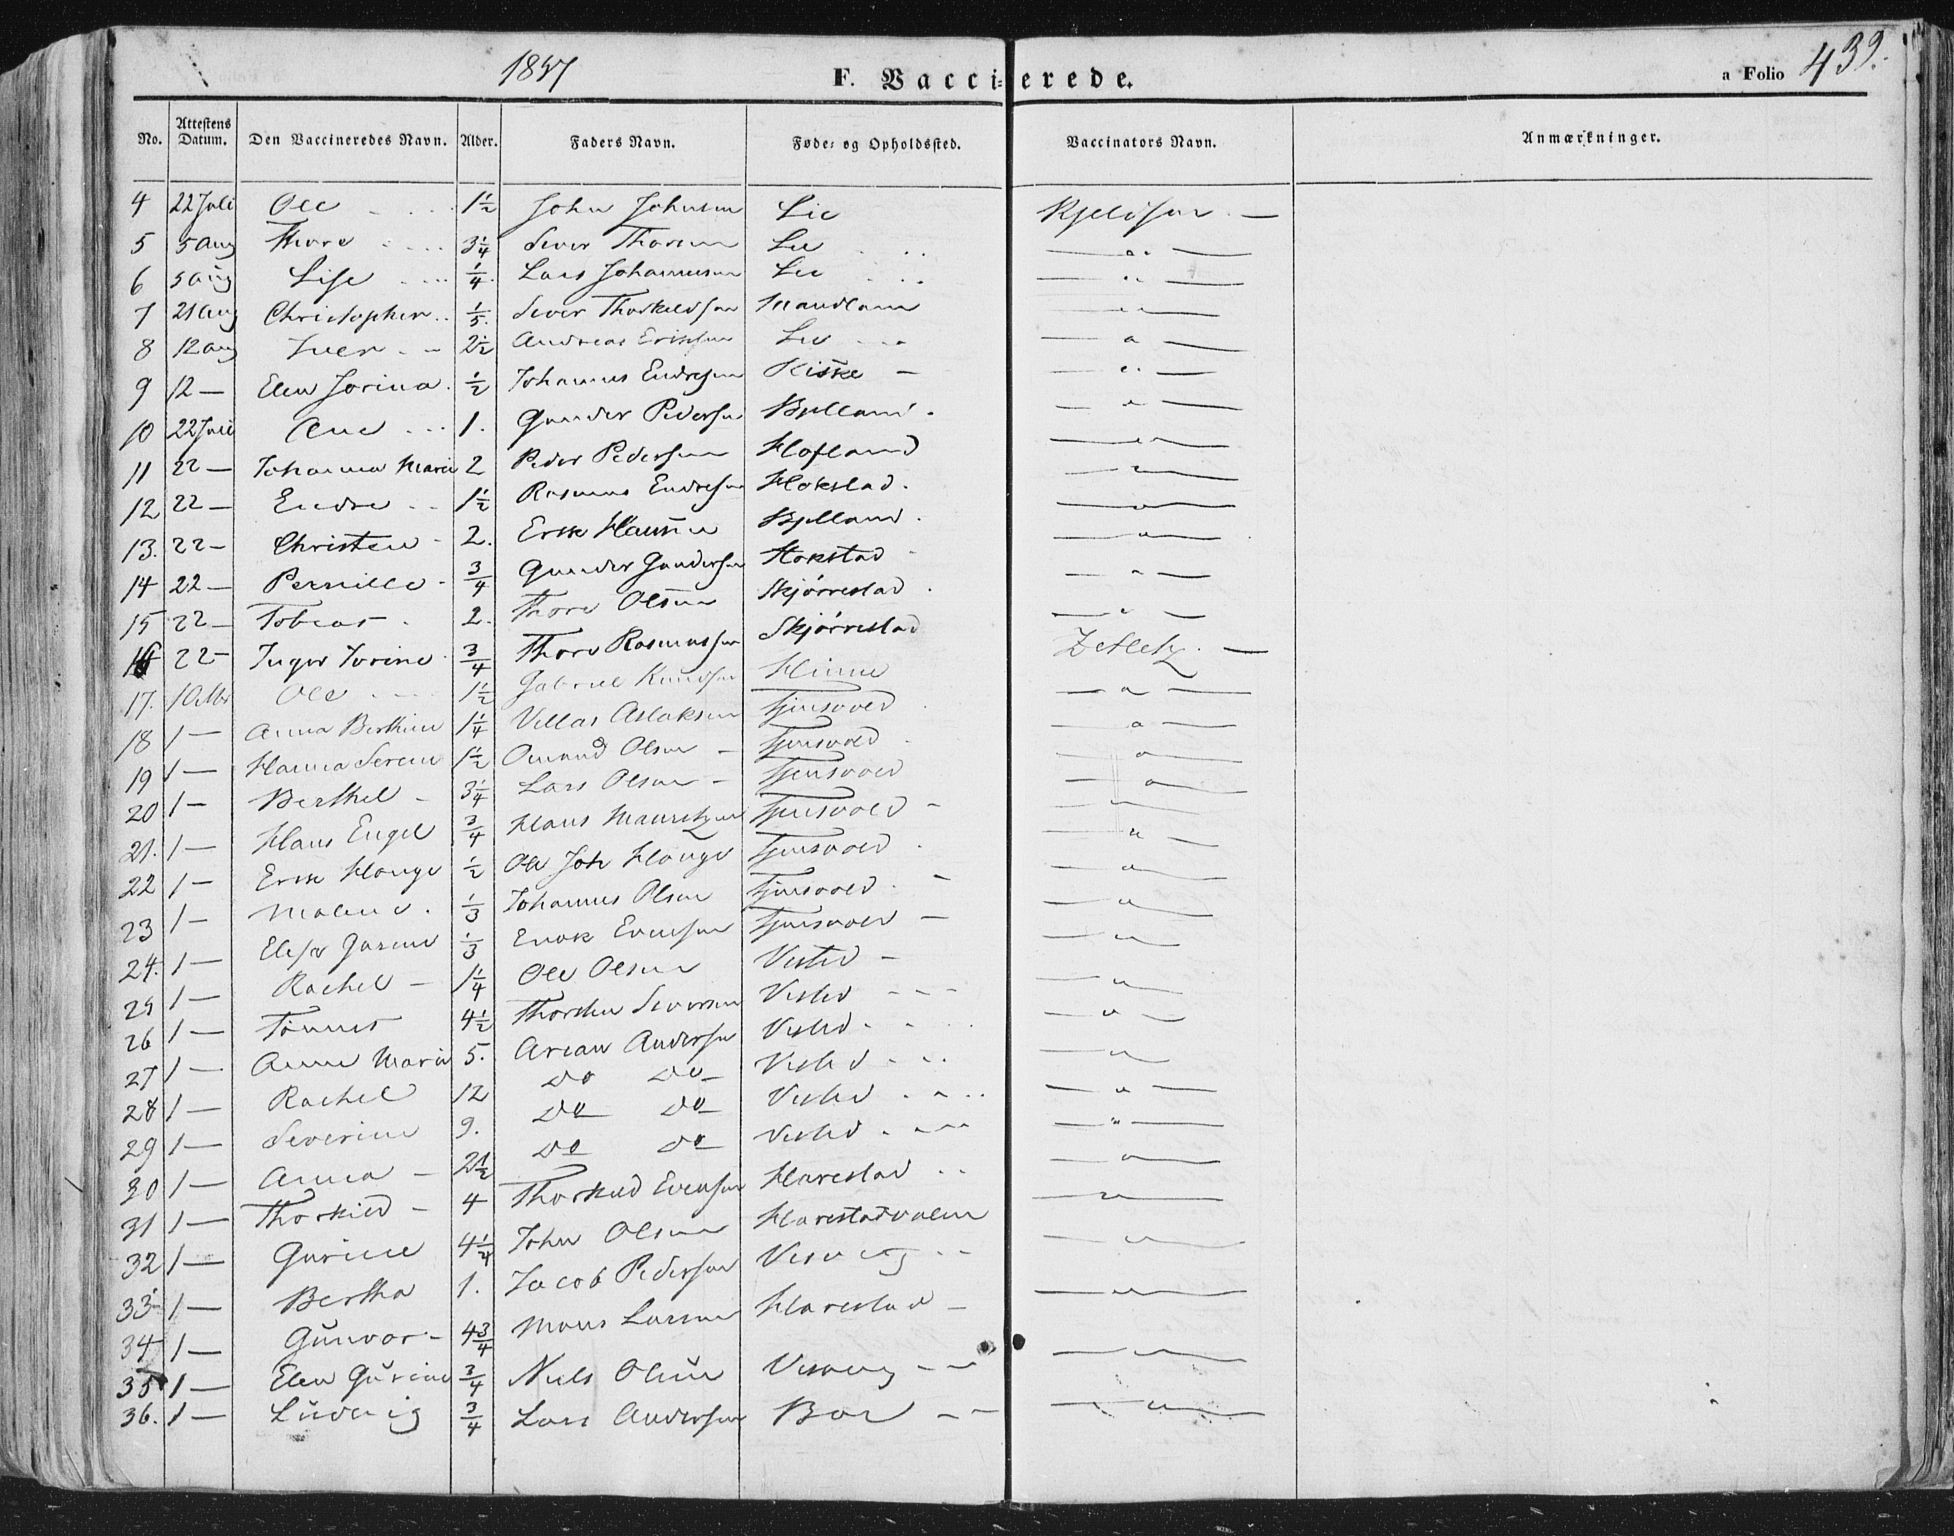 1837 F. Vaccinerede. a Folio 439.
No. Attestens Datum. Den Vaccineredes Navn. Alder. Faders Navn. Føde- og Opholdssted. Vaccinators Navn. Anmærkninger.
4 22 Juli Ole 1½ John Johnsen Lie Kjeldsen —
5 5 Aug Thore 3¼ Sever Thorsen Lie — " —
6 5 Aug Lise ¼ Lars Johannesen Lie — " —
7 21 Aug Christopher ⅕ Sever Thorkeldsen — " —
8 12 Aug Iver 2½ Andreas Eriksen Lie — " —
9 12 — Elen Jorina ½ Johannes Endresen Kiske — " —
10 22 Juli Ane 1. Gunder Pedersen Bjelland — " —
11 22 — Johanna Marie 2 Peder Pedersen Hofland — " —
12 22 — Endre 1½ Rasmus Endresen Hokstad — " —
13. 22 — Christen 2. Erik Hansen Bjelland — " —
14 22 — Pernille ¾ Gunder Gundersen Hokstad — " —
15 22 — Tobias 2. Thore Olsen Skjørrestad — " —
16 22 — Inger Torine ¾ Thore Rasmussen Skjørrestad Zetletz —
17. 10 Ole 1½ Gabriel Knudsen Hinne — " —
18 1 — Anna Berthine 1¼ Villas Aslaksen Tjensvold — " —
19 1 — Hanna Serene 1½ Omund Olsen Tjensvold — " —
20 1 — Berthel 3¼ Lars Olsen Tjensvold — " —
21. 1 — Hans Engel ¾ Hans Mauritzen Tjensvold — " —
22 1 — Erik Hauge ½ Ole Joh Hauge Tjensvold — " —
23 1 — Malene ⅓ Johannes Olsen Tjensvold — " —
24. 1 — ⅓ Enok Evensen Tjensvold — " —
25 1 — Rachel 1¼ Ole Olsen Visted — " —
26 1 — Tønnes 4½ Thorsten Seversen Visted — " —
27 1 — Anne Maria 5. Arian Andersen Visted — " —
28 1 — Rachel 12 Do Do Visted — " —
29 1 — Severine 9. Do Do Visted — " —
30 1 — Anna 2½ Do Do Visted — " —
31 1 — Thorkild 4 Thorkild Evensen Harestad — " —
32 1 — Gurine 4¼ John Olsen Harestadvalen — " —
33 1 — Bertha 1. Jacob Pedersen — " —
34 1 — Gunvor 4¾ Mons Larsen Harestad — " —
35 1 — Elen Gurine ¾ Niels Olsen — " —
36. 1 — Ludvig ¾ Lars Andersen Boe — " —